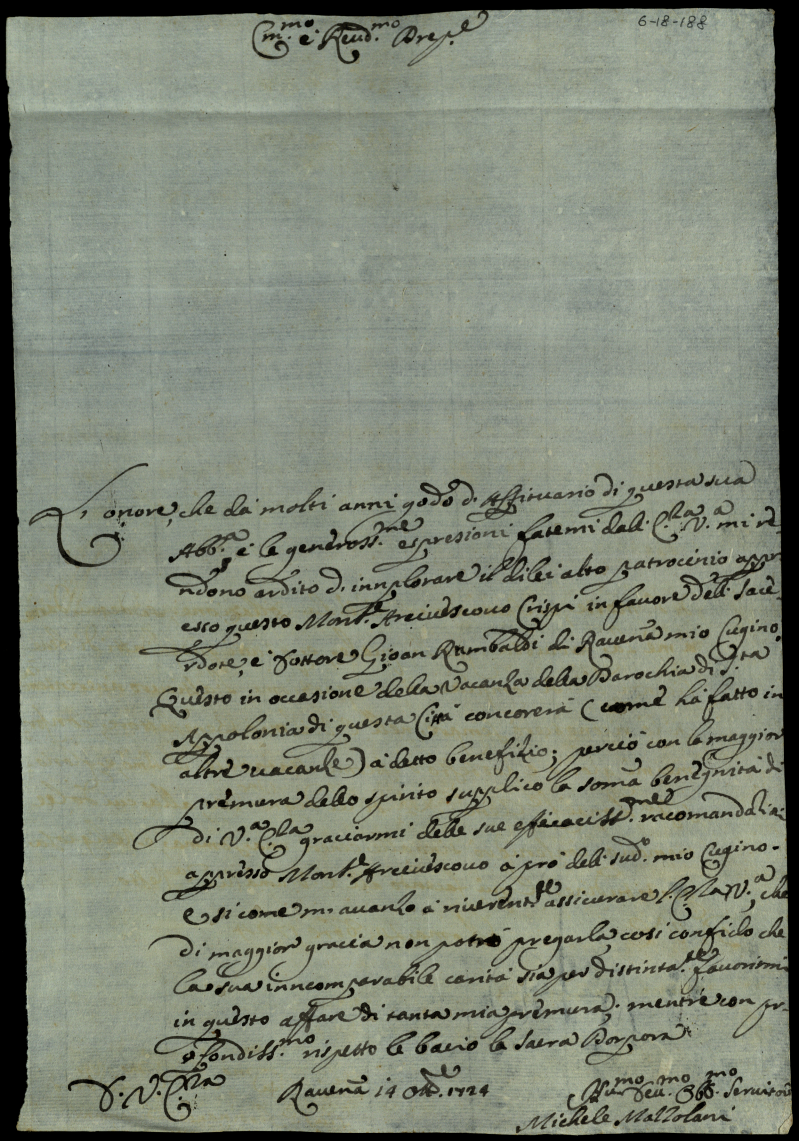 6-18-188
E.mo e Reud.mo Prnp.e
L'onore, che da molti anni godo d'Affituario di questa sua
Abb.a e le geneross.me espresioni fatemi dall' E.za V.a mi re-
ndono ardito d'innplorare il dilei alto patrocinio appr
esso questo Mons.e Arciuescouo Crispi in fauore dell' Sace-
rdote, e Dottore Gioan Rambaldi di Rauena mio Cugino.
Questo in occesione della Vacanza della Parochia di S.ta
Appolonia di questa Città concorerà (come hà fatto in
altre uacanze) à detto benefizio; perciò con la maggior
premura dello spirito supplico la soma benegnità di
di V.a E.za graciarmi delle sue eficaciss.me racomandazio:
appresso Mons.e Arciuescouo à prò dell' sud.o mio Cugino.
e si come m'auanzo à riuerent.te assicurare l'E.za V.a, che
di maggior gracia non potrò pregarla così confido che
la sua inncomparabile carità sia per distinta.te fauorirmi
in questo affare di tanta mia premura: mentre con pr-
ofondiss.mo rispetto le bacio la sacra Porpora
D. V. E.za Rauena 14 Ott.e 1724
Hu.mo Deu.mo Obb.mo Seruitore
Michele Mazzolani